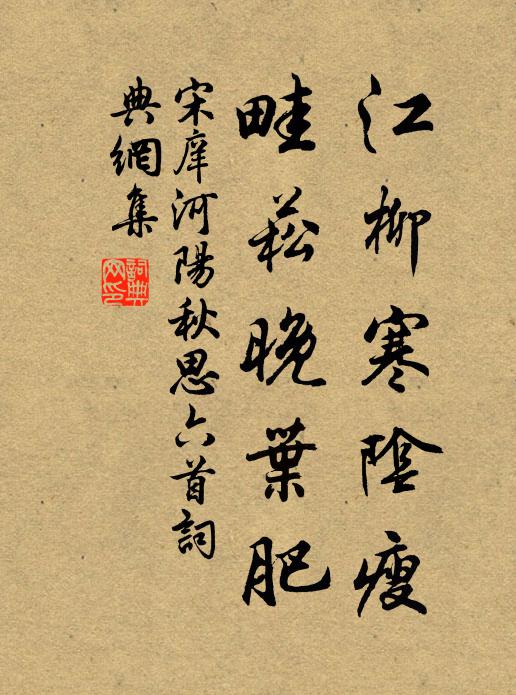 江柳寒陰瘦
畦菘晚葉肥
宋庠河陽秋思六首詞
典網集
詞典网印